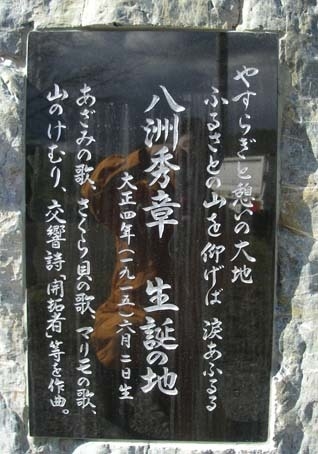 やすらぎと憩いの大地
ふるさとの山を仰げば 涙あふるる
八洲秀章 生誕の地
大正四年(一九一五)六月二日生
あざみの歌、さくら貝の歌、マリモの歌、
山のけむり、交響詩「開拓者」等を作曲。